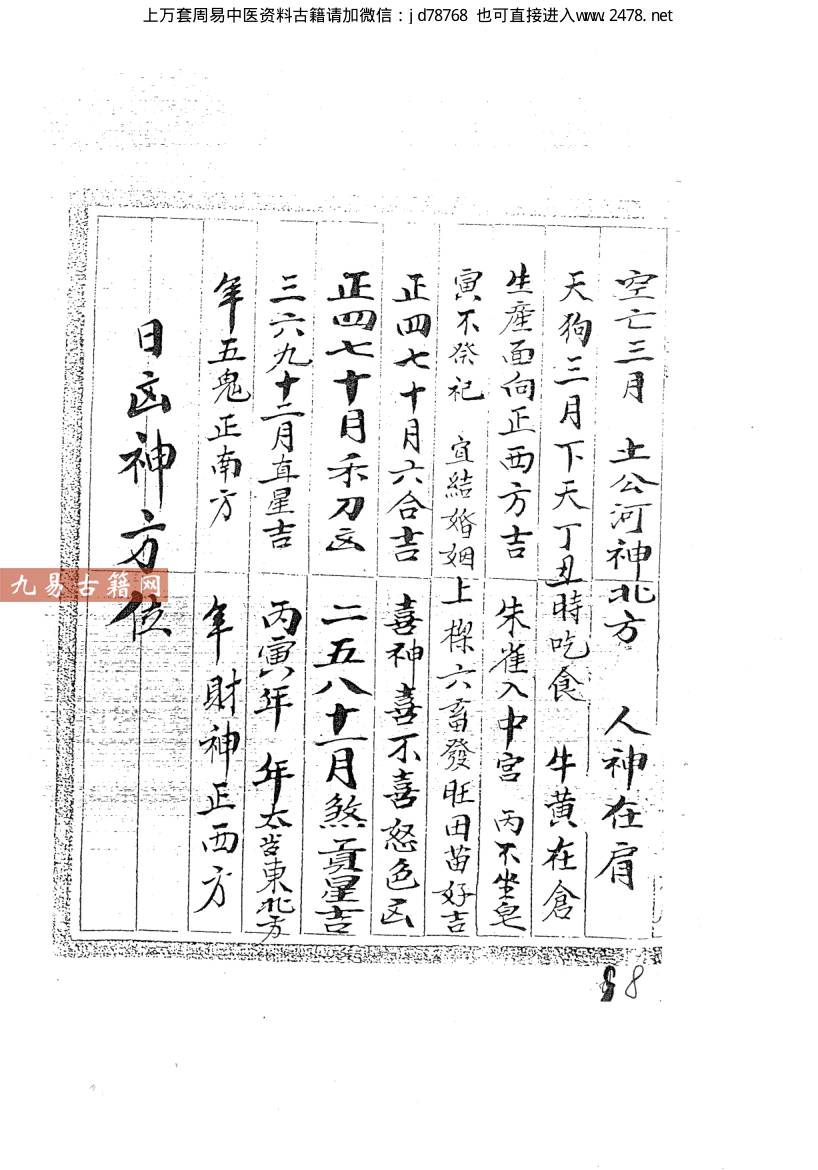 上万套周易中医资料古籍请加微信：jd78768 也可直接进入www.2478.net
空亡三月 土公河神北方 人神在肩
天狗三月下天丁丑時吃食 牛黄在倉
生産面向正西方吉 朱雀入中宮 丙不坐皂
寅不祭祀 宜結婚姻上樑六畜發旺田苗好吉
正四七十月六合吉 喜神喜不喜怒色凶
正四七十月禾刀凶 二五八十一月煞貢星吉
三六九十二月直星吉 丙寅年 年太岁東北方
年五鬼正南方 年財神正西方
日凶神方位
九易古籍网
88